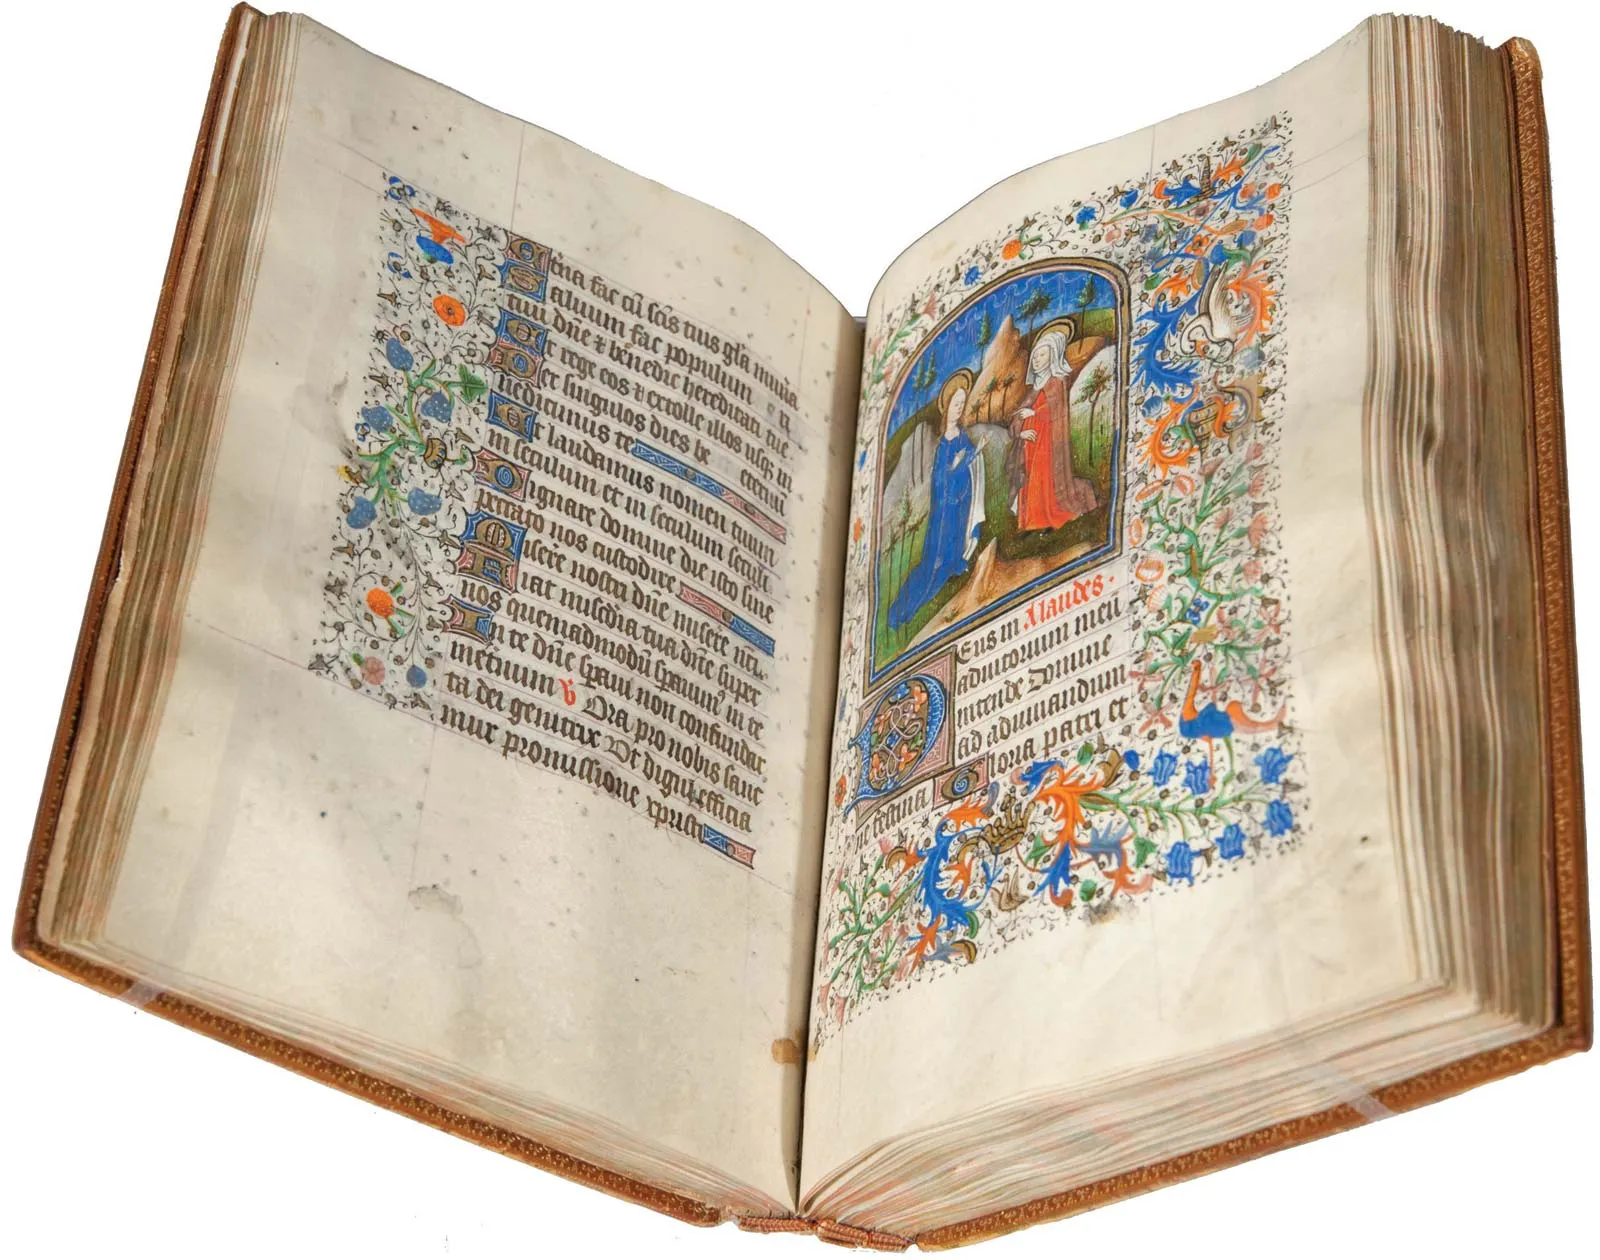 Et'na fac cū scīs tuis gl'a mun'a
Saluum fac populum
tuū dn̄e ⁊ benedic hereditati tue
Et rege eos ⁊ extolle illos usqꝫ in
Per singulos dies be eternū
nedicimus te
Et laudamus nomen tuum
in seculum et in seculum seculi
Dignare domine die isto sine
peccato nos custodire
Misere nostri dn̄e misere nr̄i
Fiat mis̄dia tua dn̄e super
nos quemadmodū spauim̄ in te
In te dn̄e spaui non confundar
in et'num V Ora pro nobis sanc
ta dei genitrix Vt digni efficia
mur promissione xpristi
Deus in Alaudes.
adiutorium meū
intende Domine
ad adiuuandum
me festina Gloria patri et